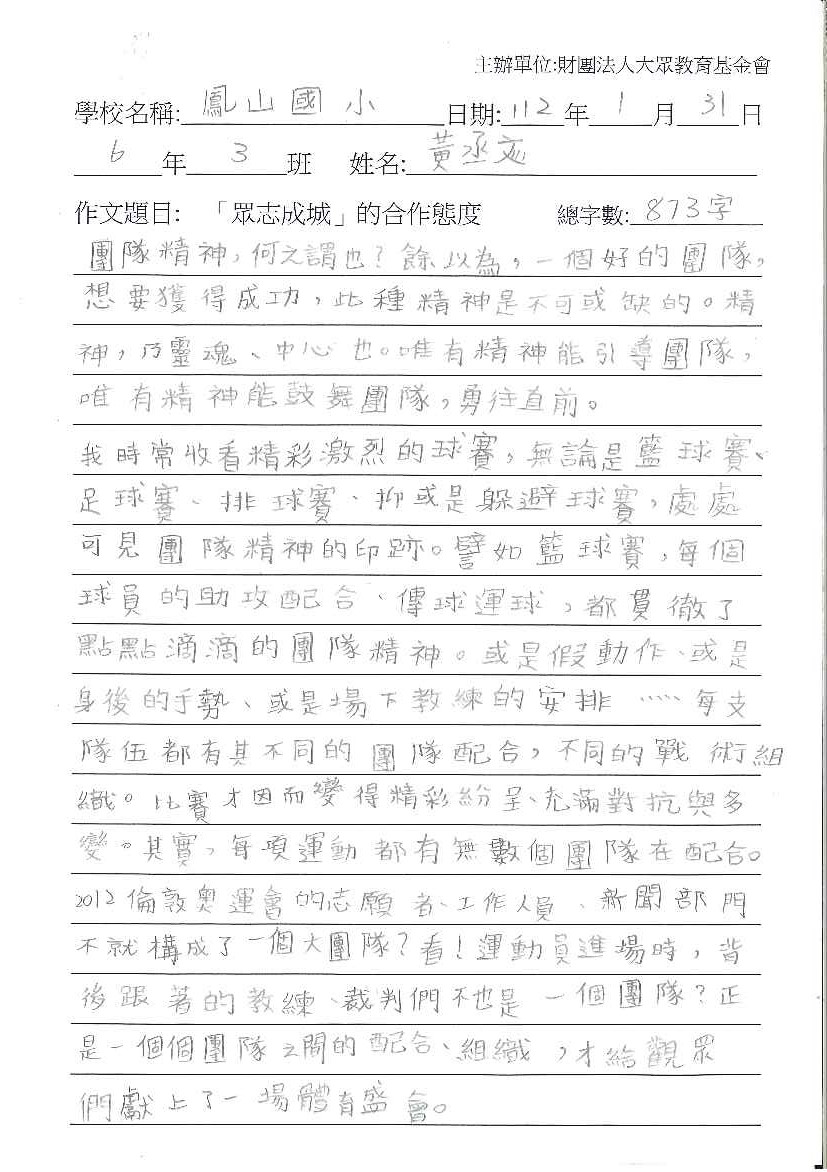 主辦單位:財團法人大眾教育基金會
學校名稱: 鳳山國小 日期: 112 年 1 月 31 日
6 年 3 班 姓名: 黃丞
作文題目: 「眾志成城」的合作態度 總字數: 873字
團隊精神,何之謂也?餘以為,一個好的團隊,
想要獲得成功,此種精神是不可或缺的。精
神,乃靈魂、中心也。唯有精神能引導團隊,
唯有精神能鼓舞團隊,勇往直前。
我時常收看精彩激烈的球賽,無論是籃球賽、
足球賽、排球賽、抑或是躲避球賽,處處
可見團隊精神的印跡。譬如籃球賽,每個
球員的助攻配合、傳球運球,都貫徹了
點點滴滴的團隊精神。或是假動作、或是
身後的手勢、或是場下教練的安排……每支
隊伍都有其不同的團隊配合,不同的戰術組
織。比賽才因而變得精彩紛呈、充滿對抗與多
變。其實,每項運動都有無數個團隊在配合。
2012倫敦奧運會的志願者、工作人員、新聞部門
不就構成了一個大團隊?看!運動員進場時,背
後跟著的教練、裁判們不也是一個團隊?正
是一個個團隊之間的配合、組織,才給觀眾
們獻上了一場體育盛會。